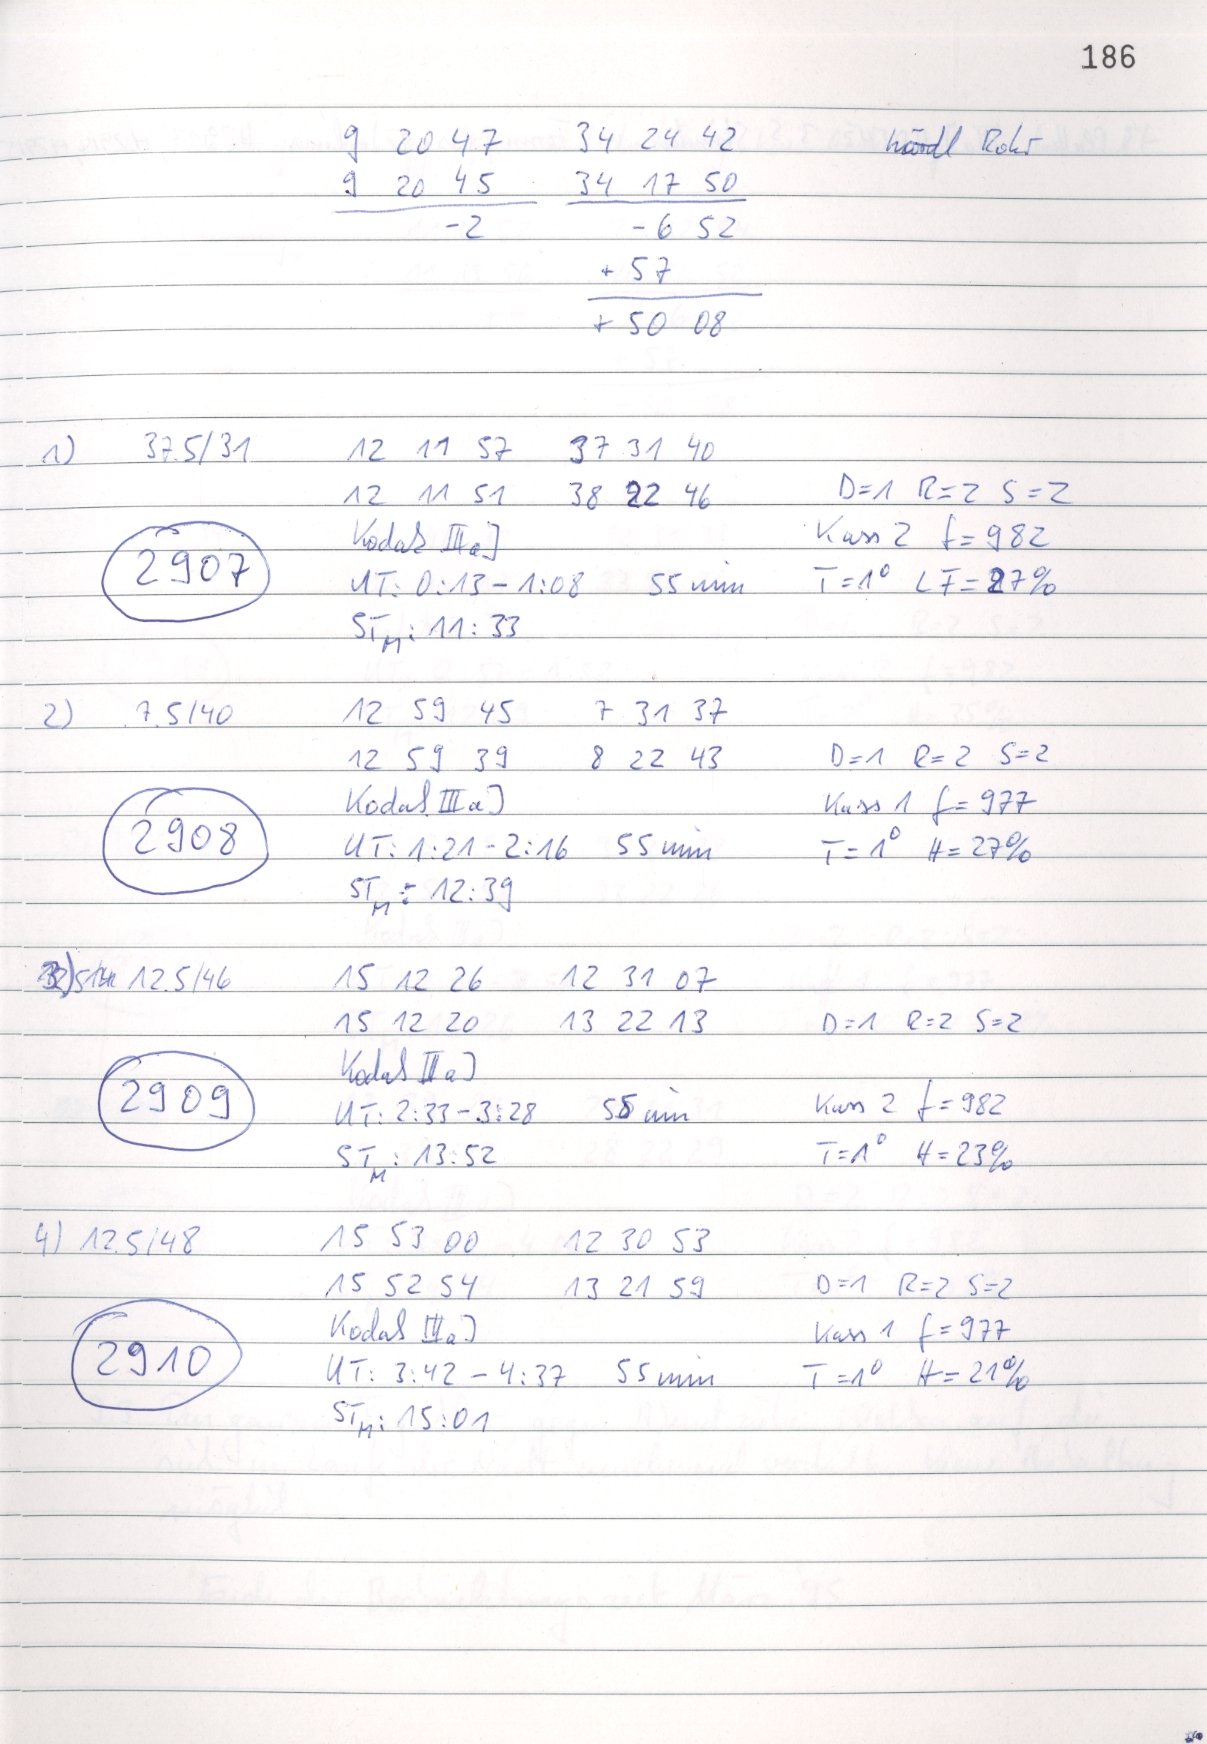 186
9 20 47 34 24 42 nördl Rohr
9 20 45 34 17 50
-2 -6 52
+ 57
+ 50 08
1) 37.5/31 12 11 57 37 31 40
12 11 51 38 22 46 D=1 R=2 S=2
2907 Kodak IIIaJ Kass 2 f=982
UT: 0:13-1:08 55 min T=1° LF=27%
STM: 11:33
2) 7.5/40 12 59 45 7 31 37
12 59 39 8 22 43 D=1 R=2 S=2
2908 Kodak IIIaJ Kass 1 f=977
UT: 1:21-2:16 55 min T=1° H=27%
STM: 12:39
3) 12.5/46 15 12 26 12 31 07
15 12 20 13 22 13 D=1 R=2 S=2
2909 Kodak IIaJ
UT: 2:33-3:28 55 min Kass 2 f=982
STM: 13:52 T=1° H=23%
4) 12.5/48 15 53 00 12 30 53
15 52 54 13 21 59 D=1 R=2 S=2
2910 Kodak IIIaJ Kass 1 f=977
UT: 3:42-4:37 55 min T=1° H=21%
STM: 15:01